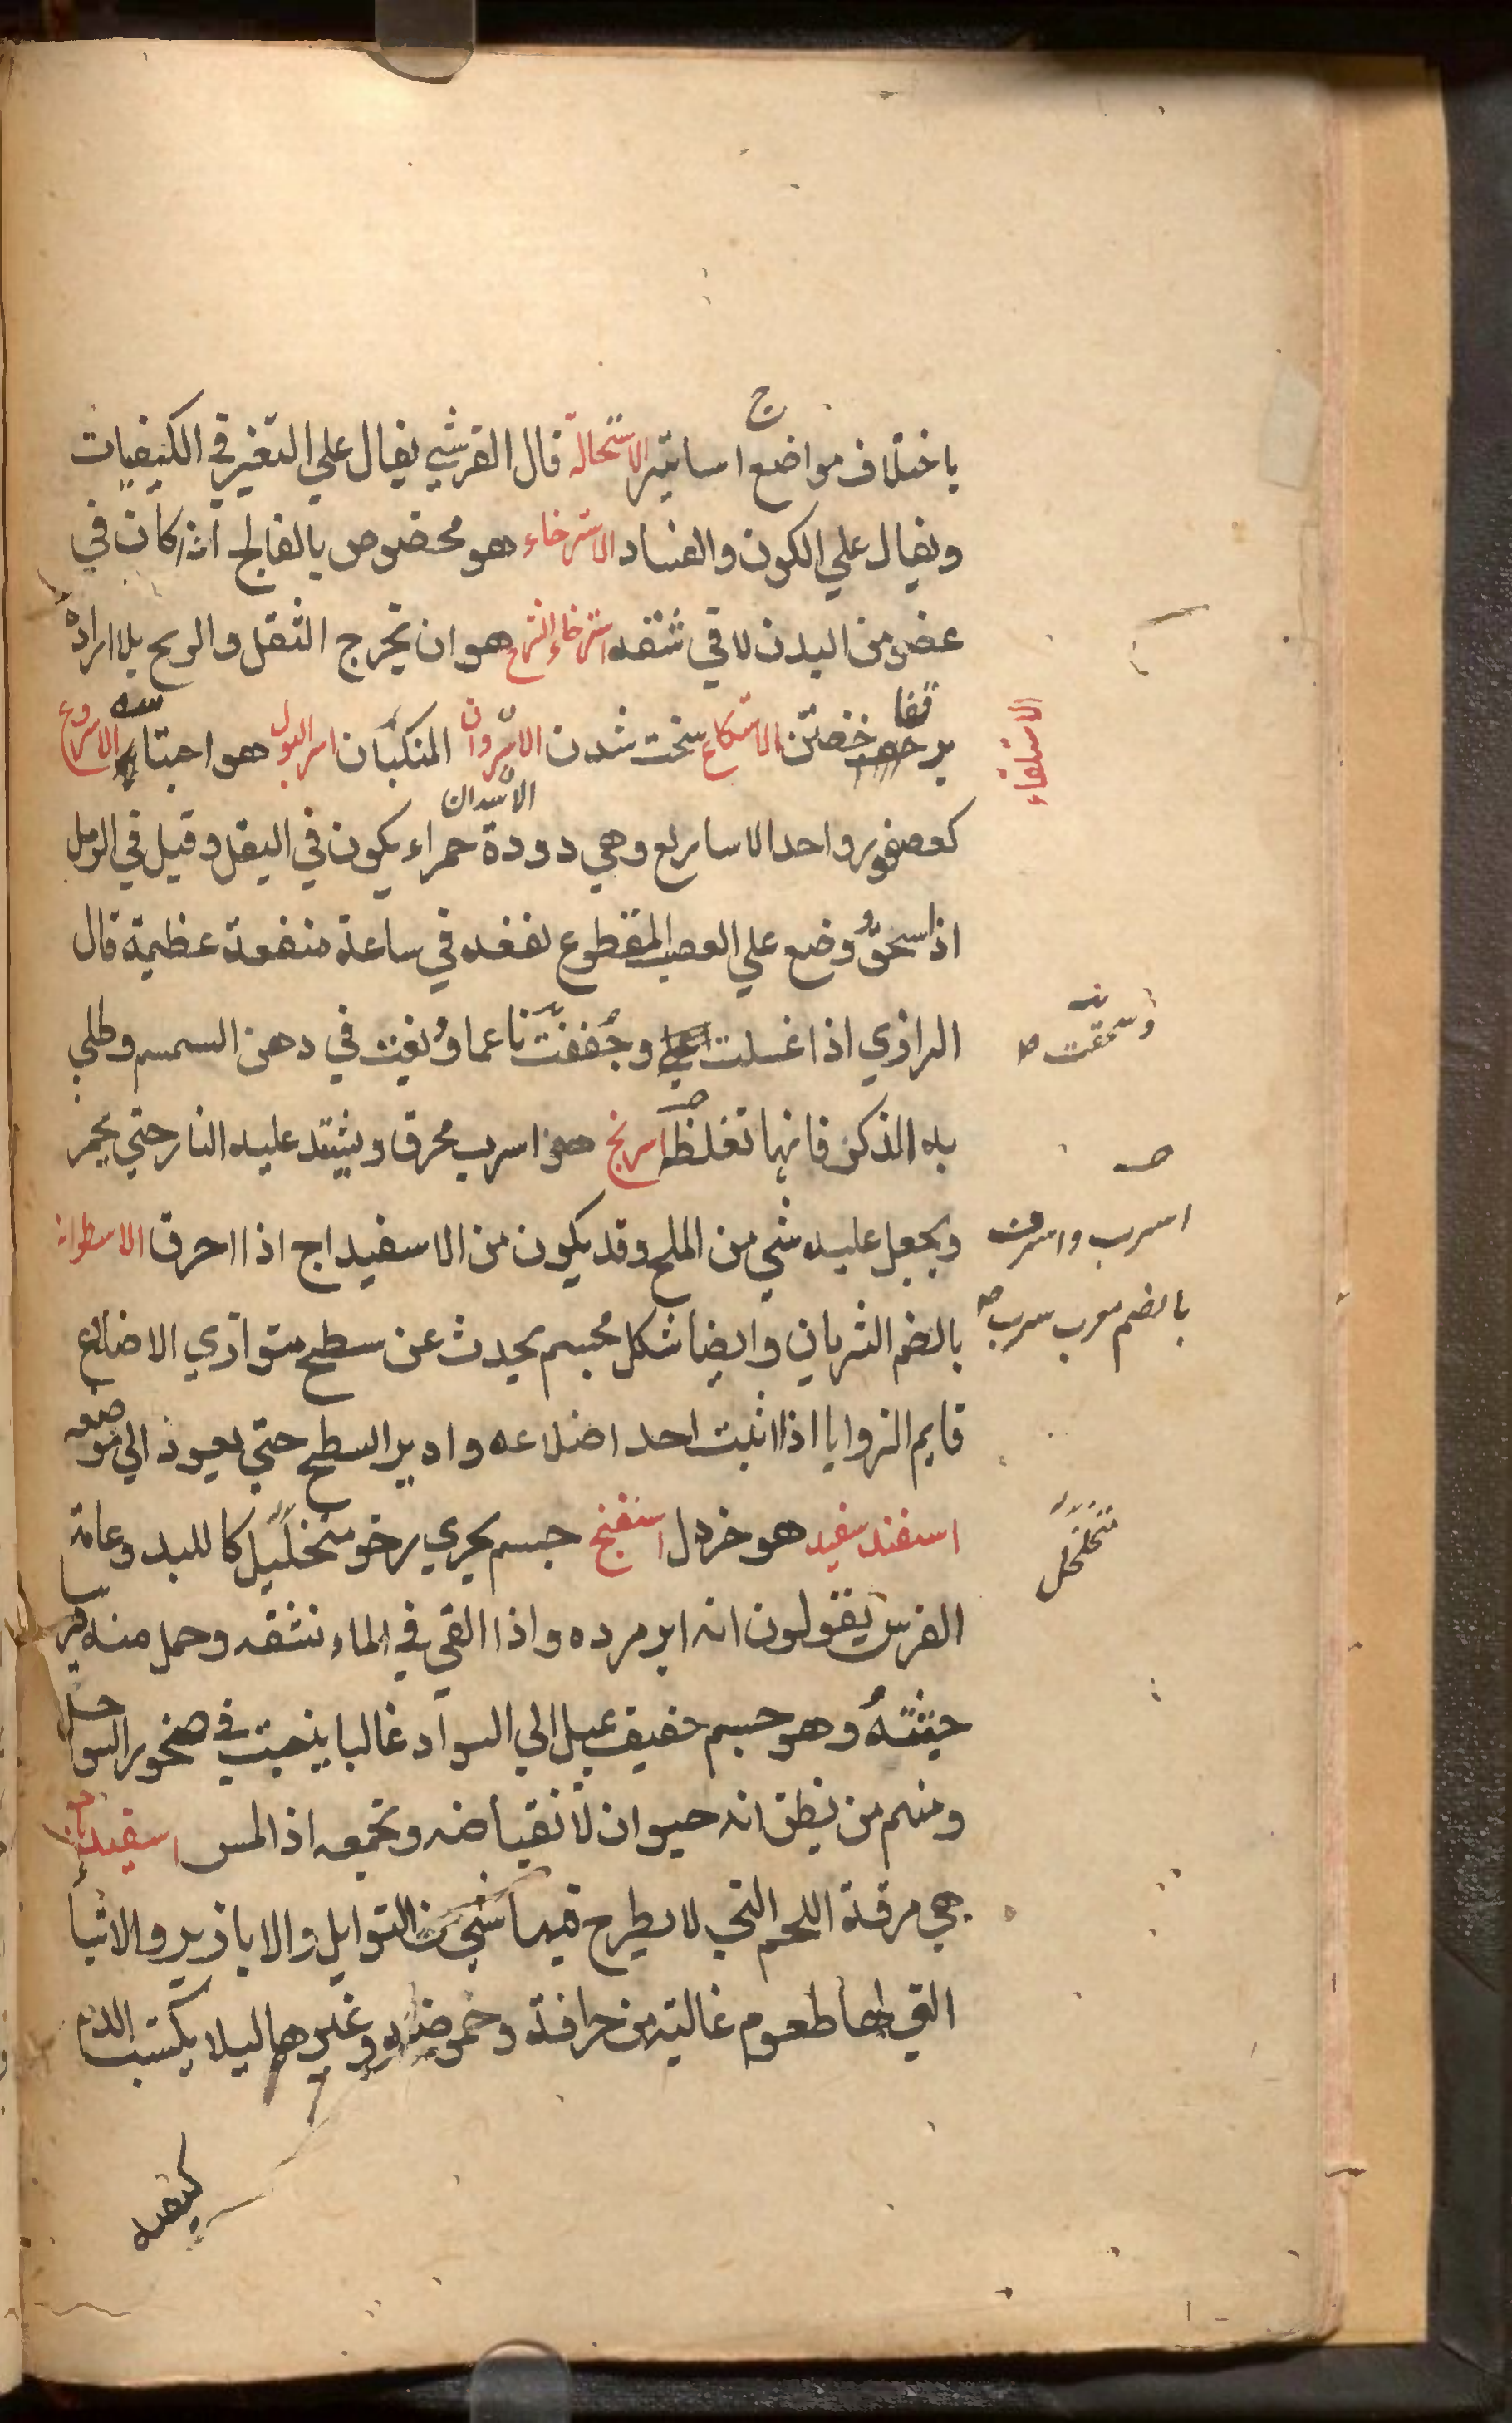 ج
باختلاف مواضع اساتير الاستحالة قال القرشي يقال علي التغير في الكيفيات
ويقال علي الكون والفساد الاسترخاء هو مخصوص بالفالج اذا كان في
عضو من البدن لا في شقه استرخاء الشرج هو ان يخرج الثقل والريح بلا ارادة
قفا
بر خفتن الاستكاع سخت شدن الاسروان المنكبان اسر البول هو احتباسه الاسروع
الاسدان
كعصفور واحد الاساريع وهي دودة حمراء يكون في البقل وقيل في الرمل
اذا سحق ووضع علي العصب المقطوع نفعه في ساعة منفعة عظيمة قال
الرازي اذا غسلت وجففت ناعما و في دهن السمسم وطلي
به الذكر فانها تغلظه اسرنج هو اسرب محرق ويشتد عليه النار حتي يحمر
ويجعل عليه شي من الملح وقد يكون من الاسفيداج اذا احرق الاسطوانه
بالضم الشريان وايضا شكل مجسم يحدث عن سطح متوازي الاضلاع
قايم الزوايا اذا اثبت احد اضلاعه وادير السطح حتي يعود الي موضعه
اسفند سفيد هو خردل اسفنج جسم بحري رخو متخلخل كاللبد وعامة
الفرس يقولون انه ابر مرده واذا القي في الماء نشفه وحمل منه
جثته وهو جسم خفيف يميل الي السواد غالبا ينبت في صخور السواحل
ومنهم من يظن انه حيوان لانقباضه وتجمعه اذا لمس
هي مرقة اللحم التي لا يطرح فيها شي من التوابل والابازير والاشيا
التي لها طعوم غالبة من حرافة وحموضة وغيرهما ليلا يكتسب الدم
كيفيه
الاستلقاء
وسحقت صح
اسرب واسرف
بالضم معرب سرب صح
متخلخل